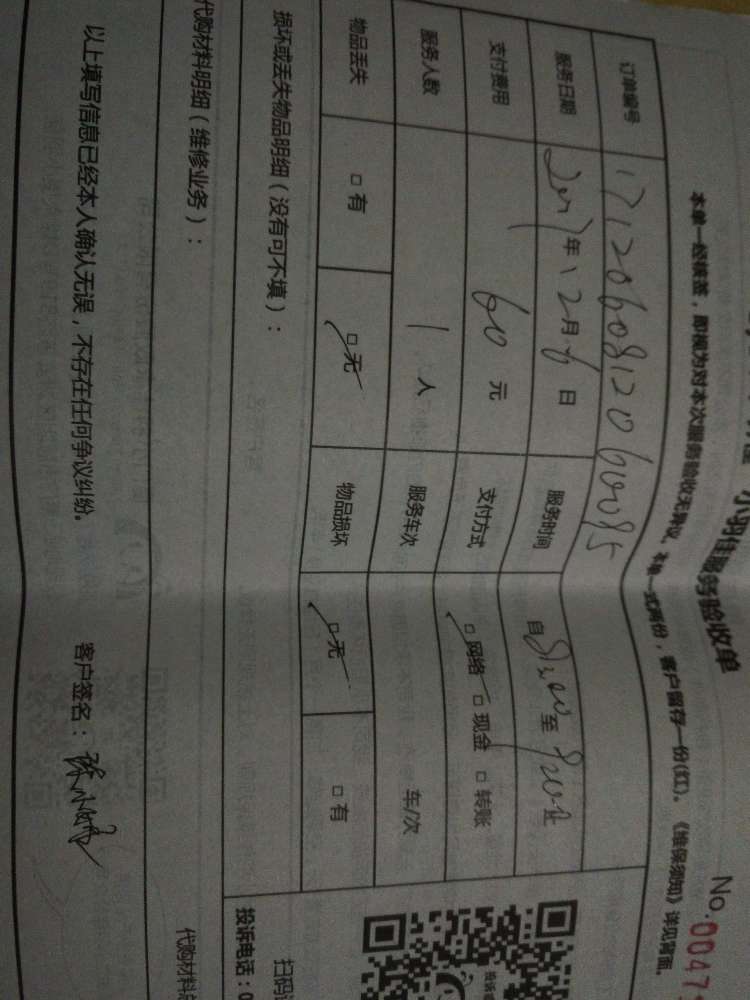 小羽佳服务验收单
No.0047
本单一经核签，即视为对本次服务验收无异议。本单一式两份，客户留存一份(红)。《维保须知》详见背面。
订单编号
服务日期 2017年12月6日 服务时间 自 8:00 至 止
支付费用 60元 支付方式 □网络 □现金 □转账
服务人数 1人 服务车次 车/次
物品丢失 □有 □无 物品损坏 □无 □有
损坏或丢失物品明细（没有可不填）：
代购材料明细（维修业务）：
代购材料
以上填写信息已经本人确认无误，不存在任何争议纠纷。 客户签名：
扫码
投诉电话：0